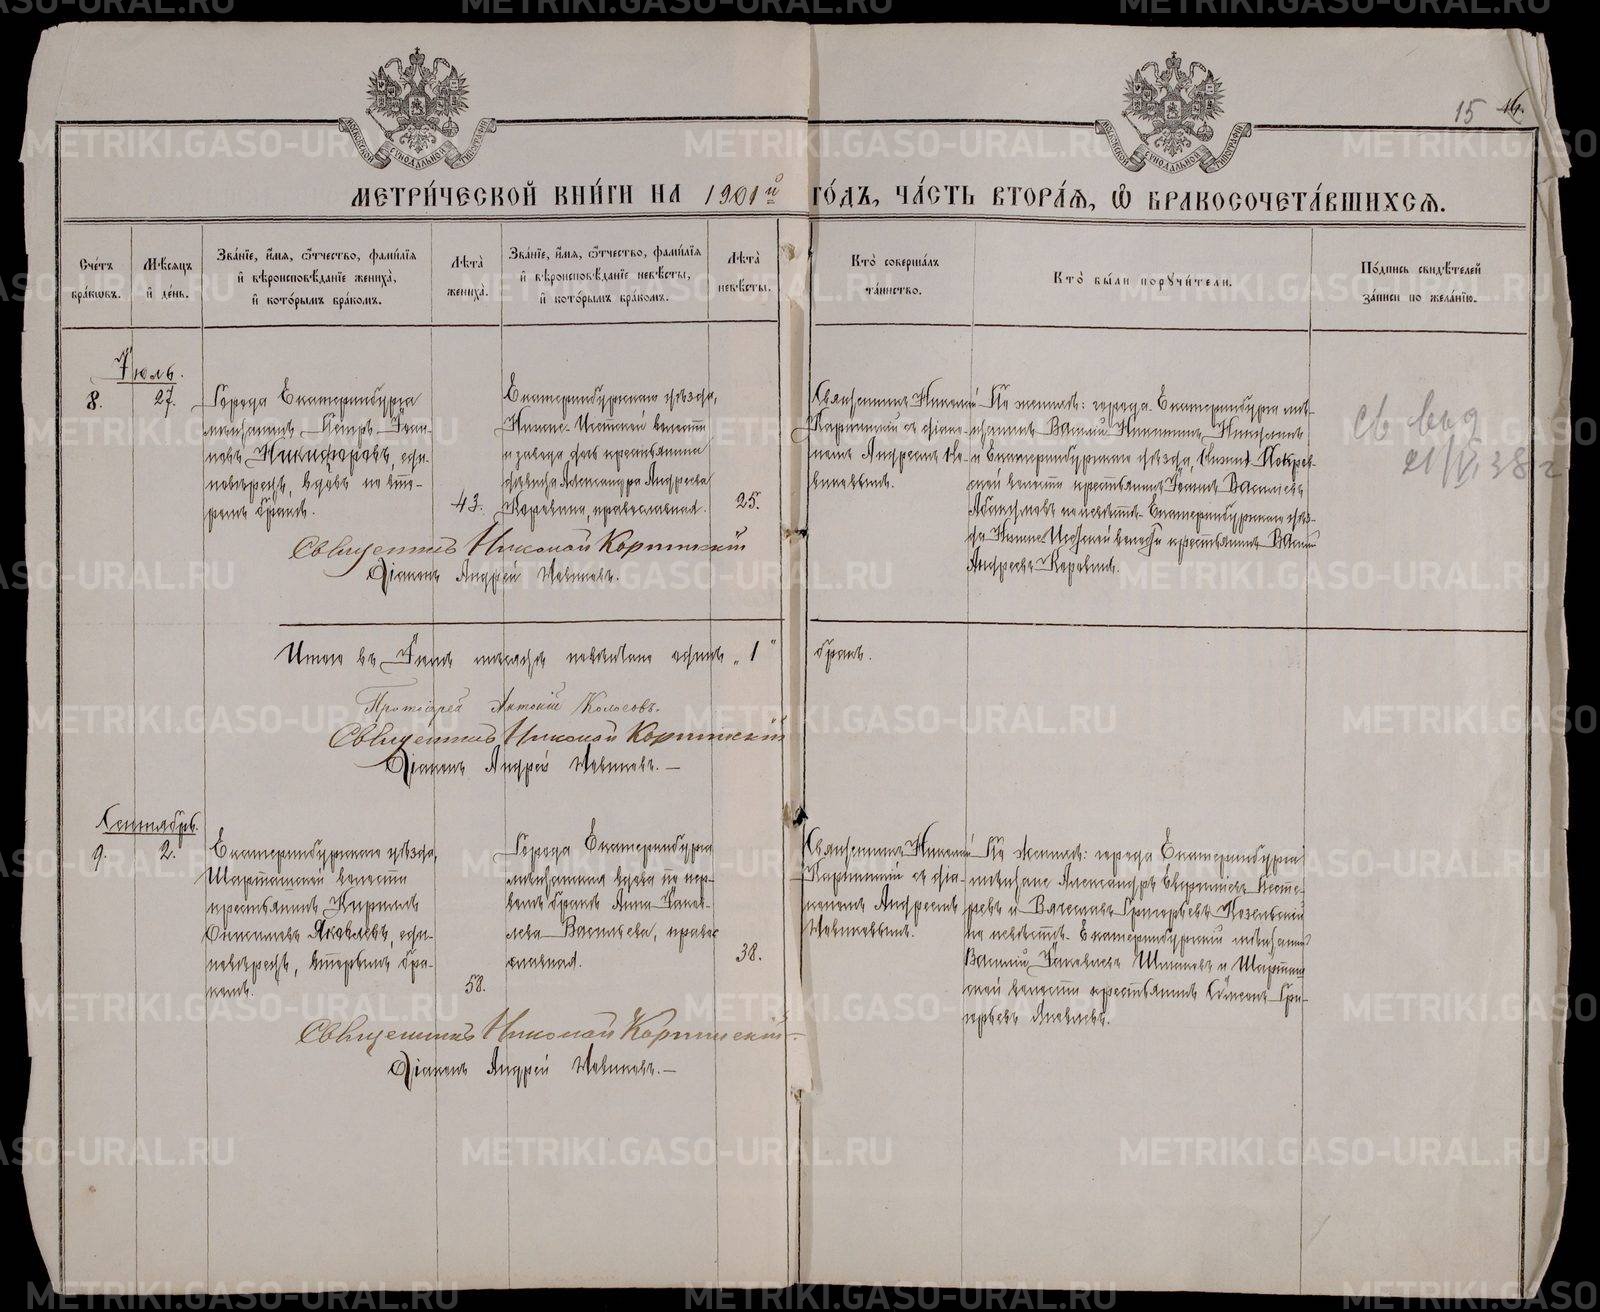 15
МЕТРИ́ЧЕСКОЙ КНИ́ГИ НА 1901й ГО́ДЪ, ЧА́СТЬ ВТОРА́Ѧ, Ѽ БРАКОСОЧЕТА́ВШИХСѦ.
Сче́тъ бра́кѡвъ.
Мѣ́сяцъ и҆ де́нь.
Зва́нїе, и҆́мя, ѻ҆́тчество, фами́лїя и҆ вѣроисповѣ́данїе жениха̀, и҆ кото́рымъ бра́комъ.
Лѣ́та жениха̀.
Зва́нїе, и҆́мя, ѻ҆́тчество, фами́лїя и҆ вѣроисповѣ́данїе невѣ́сты, и҆ кото́рымъ бра́комъ.
Лѣ́та невѣ́сты.
Кто̀ соверша́лъ та́инство.
Кто̀ бы́ли порꙋчи́тели.
По́дпись свидѣ́телей за́писи по жела́нїю.
Іюль.
8.
27.
Города Екатеринбурга
мѣщанинъ Петръ Іоан-
новъ Никифоровъ, еди-
новѣрецъ, вдовъ по вто-
ромъ бракѣ.
43.
Екатеринбургскаго уѣзда,
Нижне-Исетской волости
и завода дочь крестьянина
дѣвица Александра Андреева
Коровина, православная.
25.
Священникъ Николай
Корпинскій съ діако-
номъ Андреемъ Но-
виковымъ.
По женихѣ: города Екатеринбурга мѣ-
щанинъ Василій Никитинъ
и Екатеринбургскаго уѣзда,
ской волости крестьянинъ Іоаннъ Васильевъ
по невѣстѣ - Екатеринбургскаго уѣз-
да Нижне-Исетской волости крестьянинъ
Андреевъ Коровинъ.
Св выд
21/IV 38 г
Священникъ Николай Корпинскій
Діаконъ Андрей Новиковъ.
Итого въ Іюлѣ мѣсяцѣ повѣнчано одинъ „1“ бракъ.
Протоіерей Антоній Колосовъ.
Священникъ Николай Корпинскій
Діаконъ Андрей Новиковъ. —
Сентябрь.
9.
2.
Екатеринбургскаго уѣзда,
Шарташской волости
крестьянинъ Кириллъ
Яковлевъ, еди-
новѣрецъ, вторымъ бра-
комъ.
58.
Города Екатеринбурга
мѣщанская вдова по пер-
вомъ бракѣ Анна Яков-
лева Васильева, право-
славная.
38.
Священникъ Николай
Корпинскій съ діа-
кономъ Андреемъ
Новиковымъ.
По женихѣ: города Екатеринбурга
мѣщане Александръ
и Вячеславъ Григорьевъ
по невѣстѣ - Екатеринбургскій мѣщанинъ
Василій Яковлевъ и Шарташ-
ской волости крестьянинъ Симеонъ Гри-
горьевъ Яковлевъ.
Священникъ Николай Корпинскій
Діаконъ Андрей Новиковъ. —
METRIKI.GASO-URAL.RU